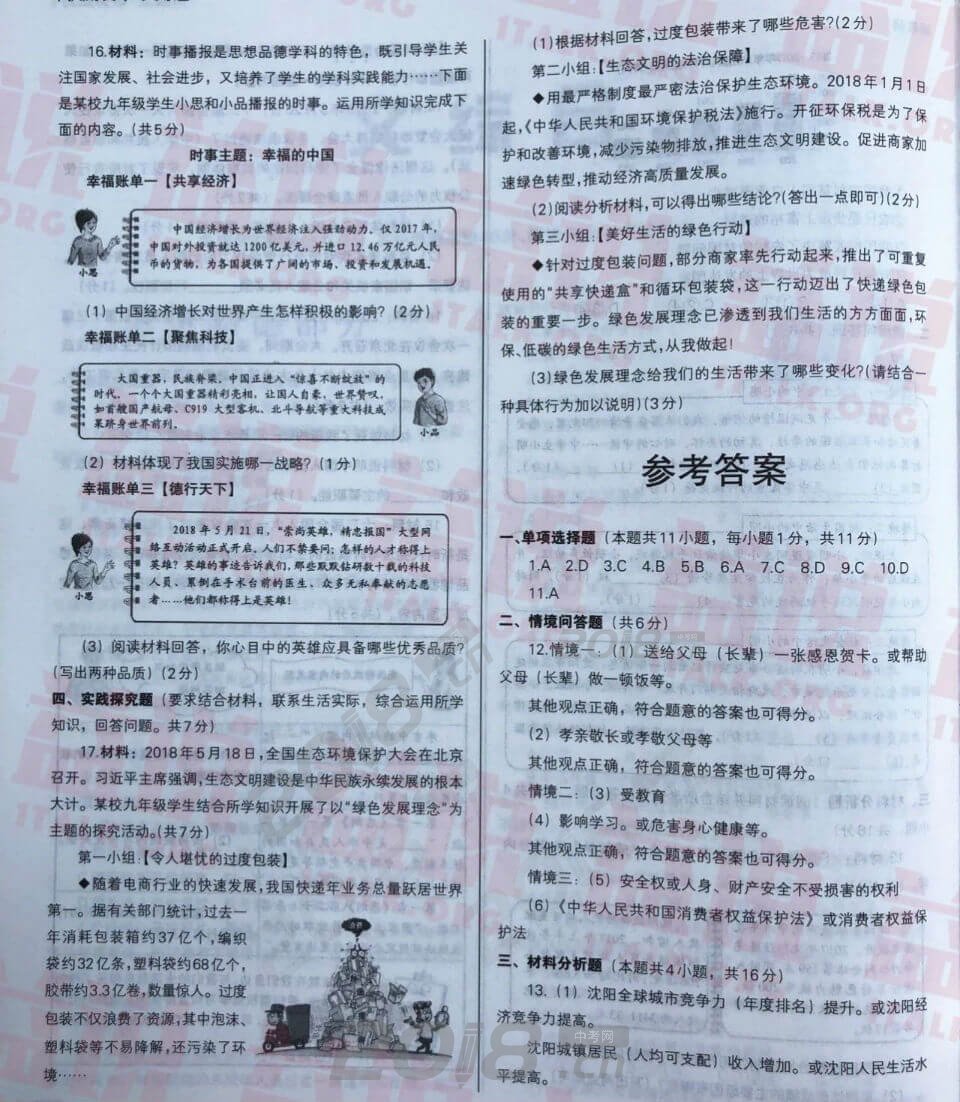 16.材料：时事播报是思想品德学科的特色，既引导学生关
注国家发展、社会进步，又培养了学生的学科实践能力……下面
是某校九年级学生小思和小品播报的时事。运用所学知识完成下
面的内容。(共5分)
时事主题：幸福的中国
幸福账单一【共享经济】
中国经济增长为世界经济注入强劲动力。仅2017年，
中国对外投资就达1200亿美元，并进口12.46万亿元人民
币的货物，为各国提供了广阔的市场、投资和发展机遇。
小思
(1) 中国经济增长对世界产生怎样积极的影响？(2分)
幸福账单二【聚焦科技】
大国重器，民族脊梁，中国正进入“惊喜不断绽放”的
时代，一个个大国重器精彩亮相，让国人自豪、世界赞叹，
如首艘国产航母、C919大型客机、北斗导航等重大科技成
果跻身世界前列。
小品
(2) 材料体现了我国实施哪一战略？(1分)
幸福账单三【德行天下】
2018年5月21日，“崇尚英雄，精忠报国”大型网
络互动活动正式开启，人们不禁要问：怎样的人才称得上
英雄？英雄的事迹告诉我们，那些默默钻研数十载的科技
人员、累倒在手术台前的医生、众多无私奉献的志愿
者……他们都称得上是英雄！
小思
(3) 阅读材料回答，你心目中的英雄应具备哪些优秀品质？
(写出两种品质)(2分)
四、实践探究题(要求结合材料，联系生活实际，综合运用所学
知识，回答问题。共7分)
17.材料：2018年5月18日，全国生态环境保护大会在北京
召开。习近平主席强调，生态文明建设是中华民族永续发展的根本
大计。某校九年级学生结合所学知识开展了以“绿色发展理念”为
主题的探究活动。(共7分)
第一小组：【令人堪忧的过度包装】
◆随着电商行业的快速发展，我国快递年业务总量跃居世界
第一。据有关部门统计，过去一
年消耗包装箱约37亿个，编织
袋约32亿条，塑料袋约68亿个，
胶带约3.3亿卷，数量惊人。过度
包装不仅浪费了资源，其中泡沫、
塑料袋等不易降解，还污染了环
境……
(1)根据材料回答，过度包装带来了哪些危害？(2分)
第二小组：【生态文明的法治保障】
◆用最严格制度最严密法治保护生态环境。2018年1月1日
起，《中华人民共和国环境保护税法》施行。开征环保税是为了保
护和改善环境，减少污染物排放，推进生态文明建设。促进商家加
速绿色转型，推动经济高质量发展。
(2)阅读分析材料，可以得出哪些结论？(答出一点即可)(2分)
第三小组：【美好生活的绿色行动】
◆针对过度包装问题，部分商家率先行动起来，推出了可重复
使用的“共享快递盒”和循环包装袋，这一行动迈出了快递绿色包
装的重要一步。绿色发展理念已渗透到我们生活的方方面面，环
保、低碳的绿色生活方式，从我做起！
(3)绿色发展理念给我们的生活带来了哪些变化？(请结合一
种具体行为加以说明)(3分)
参考答案
一、单项选择题（本题共11小题，每小题1分，共11分）
1.A 2.D 3.C 4.B 5.B 6.A 7.C 8.D 9.C 10.D
11.A
二、情境问答题（共6分）
12.情境一：(1) 送给父母（长辈）一张感恩贺卡。或帮助
父母（长辈）做一顿饭等。
其他观点正确，符合题意的答案也可得分。
(2) 孝亲敬长或孝敬父母等
其他观点正确，符合题意的答案也可得分。
情境二：(3) 受教育
(4) 影响学习。或危害身心健康等。
其他观点正确，符合题意的答案也可得分。
情境三：(5) 安全权或人身、财产安全不受损害的权利
(6)《中华人民共和国消费者权益保护法》或消费者权益保
护法
三、材料分析题（本题共4小题，共16分）
13. (1) 沈阳全球城市竞争力（年度排名）提升。或沈阳经
济竞争力提高。
沈阳城镇居民（人均可支配）收入增加。或沈阳人民生活水
平提高。
2018
中考网